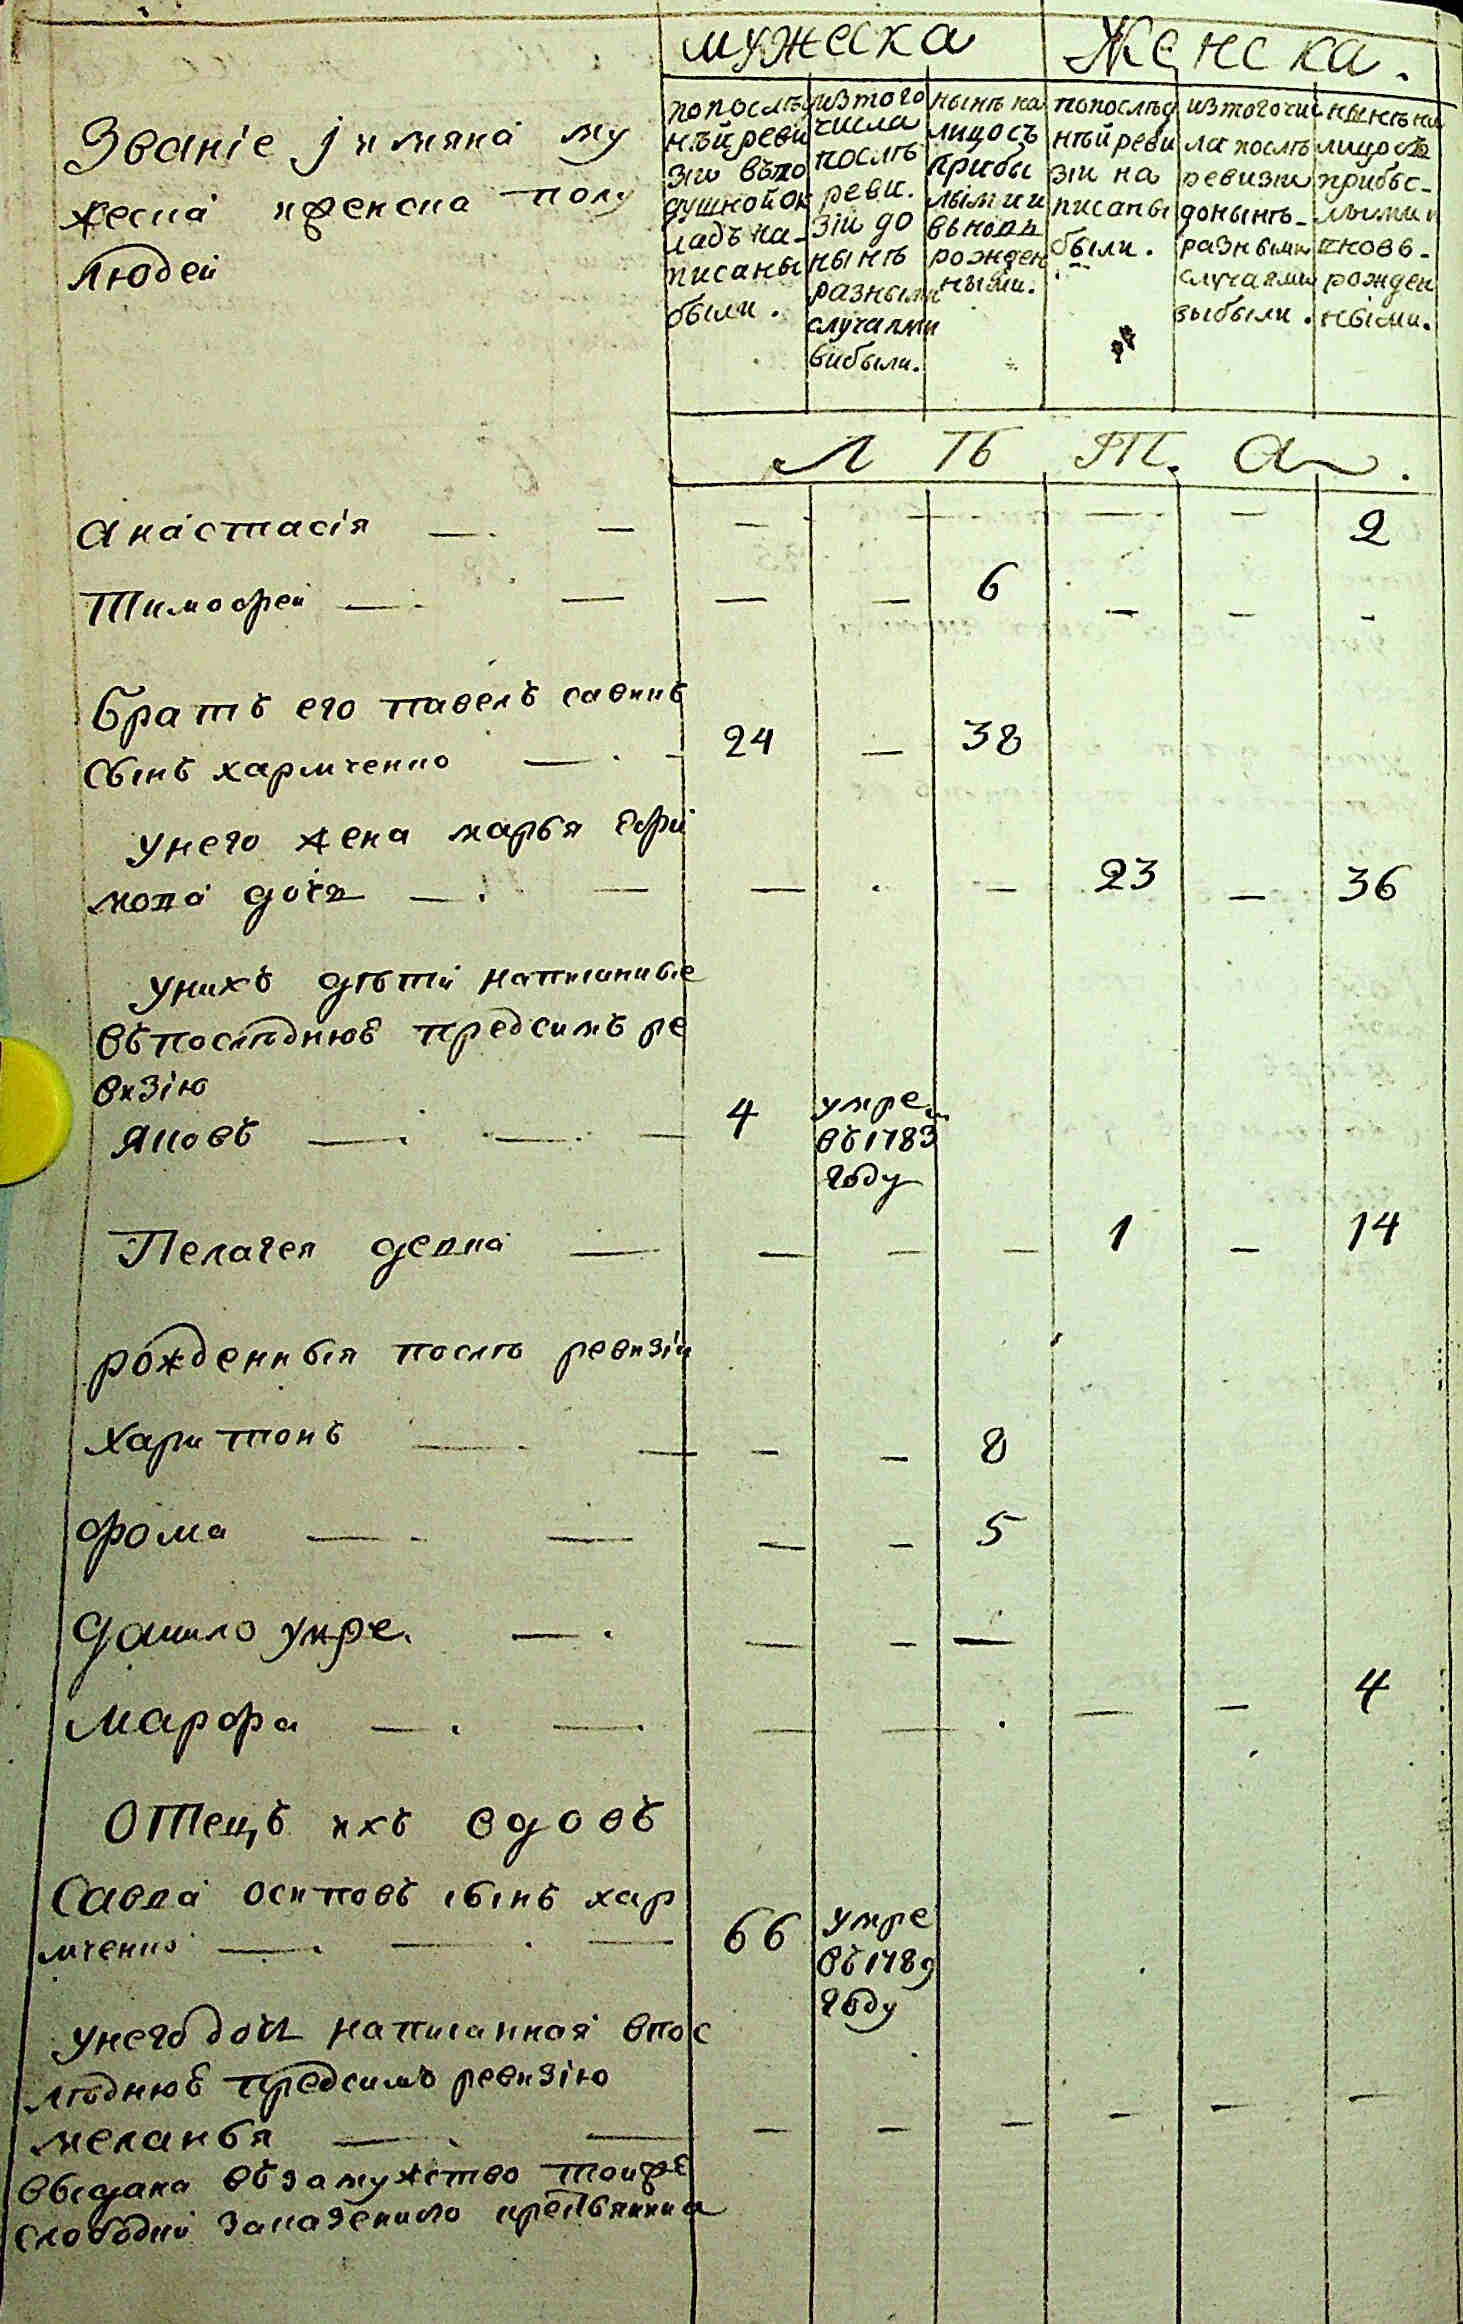 мужеска Женска.
Званіе јимяна му
жеска иженска полу
людей
попослѣд
нѣй реви
зіи въпо
душной ок
ладъ на-
писаны
были.
изтого
числа
послѣ
реви.
зіи до
нынѣ
разными
случаями
выбыли.
нынѣ на
лицо съ
прибы
лыми и
вьновь
рожден
ными.
попослѣд
нѣй реви
зіи на
писаны
были.
изтого чис
ла послѣ
ревизіи
донынѣ-
разными
случаями
выбыли.
нынѣ на
лицо съ
прибы-
лыми и
вновь-
рожден
ными.
Л Ѣ Т. А.
Анастасія — — — — — — — 2
Тимофей — — — — 6 — — -
братъ его павелъ савинъ
сынъ хармченко — - 24 — 38
унего жена марья ефи
мова дочь — — — . — 23 — 36
унихъ дѣти написанные
въпослѣднюю предсимъ ре
визію
Яковъ — — — 4 умре
въ 1783
году
Пелагея девка — — — — 1 — 14
рожденныя послѣ ревизіи
Харитонъ — — — — 8
Фома — — — — 5
данило умре. — — — —
Марфа — — — — . — — 4
Отецъ ихъ вдовъ
Савва осиповъ сынъ хар
мченко — — — 66 умре
въ 1789
году
унего дочь написанная впос
лѣднюю предсимъ ревизію
меланья — — — — — — — —
выдана въ замужство тоижъ
слободки заказенного крестьянина